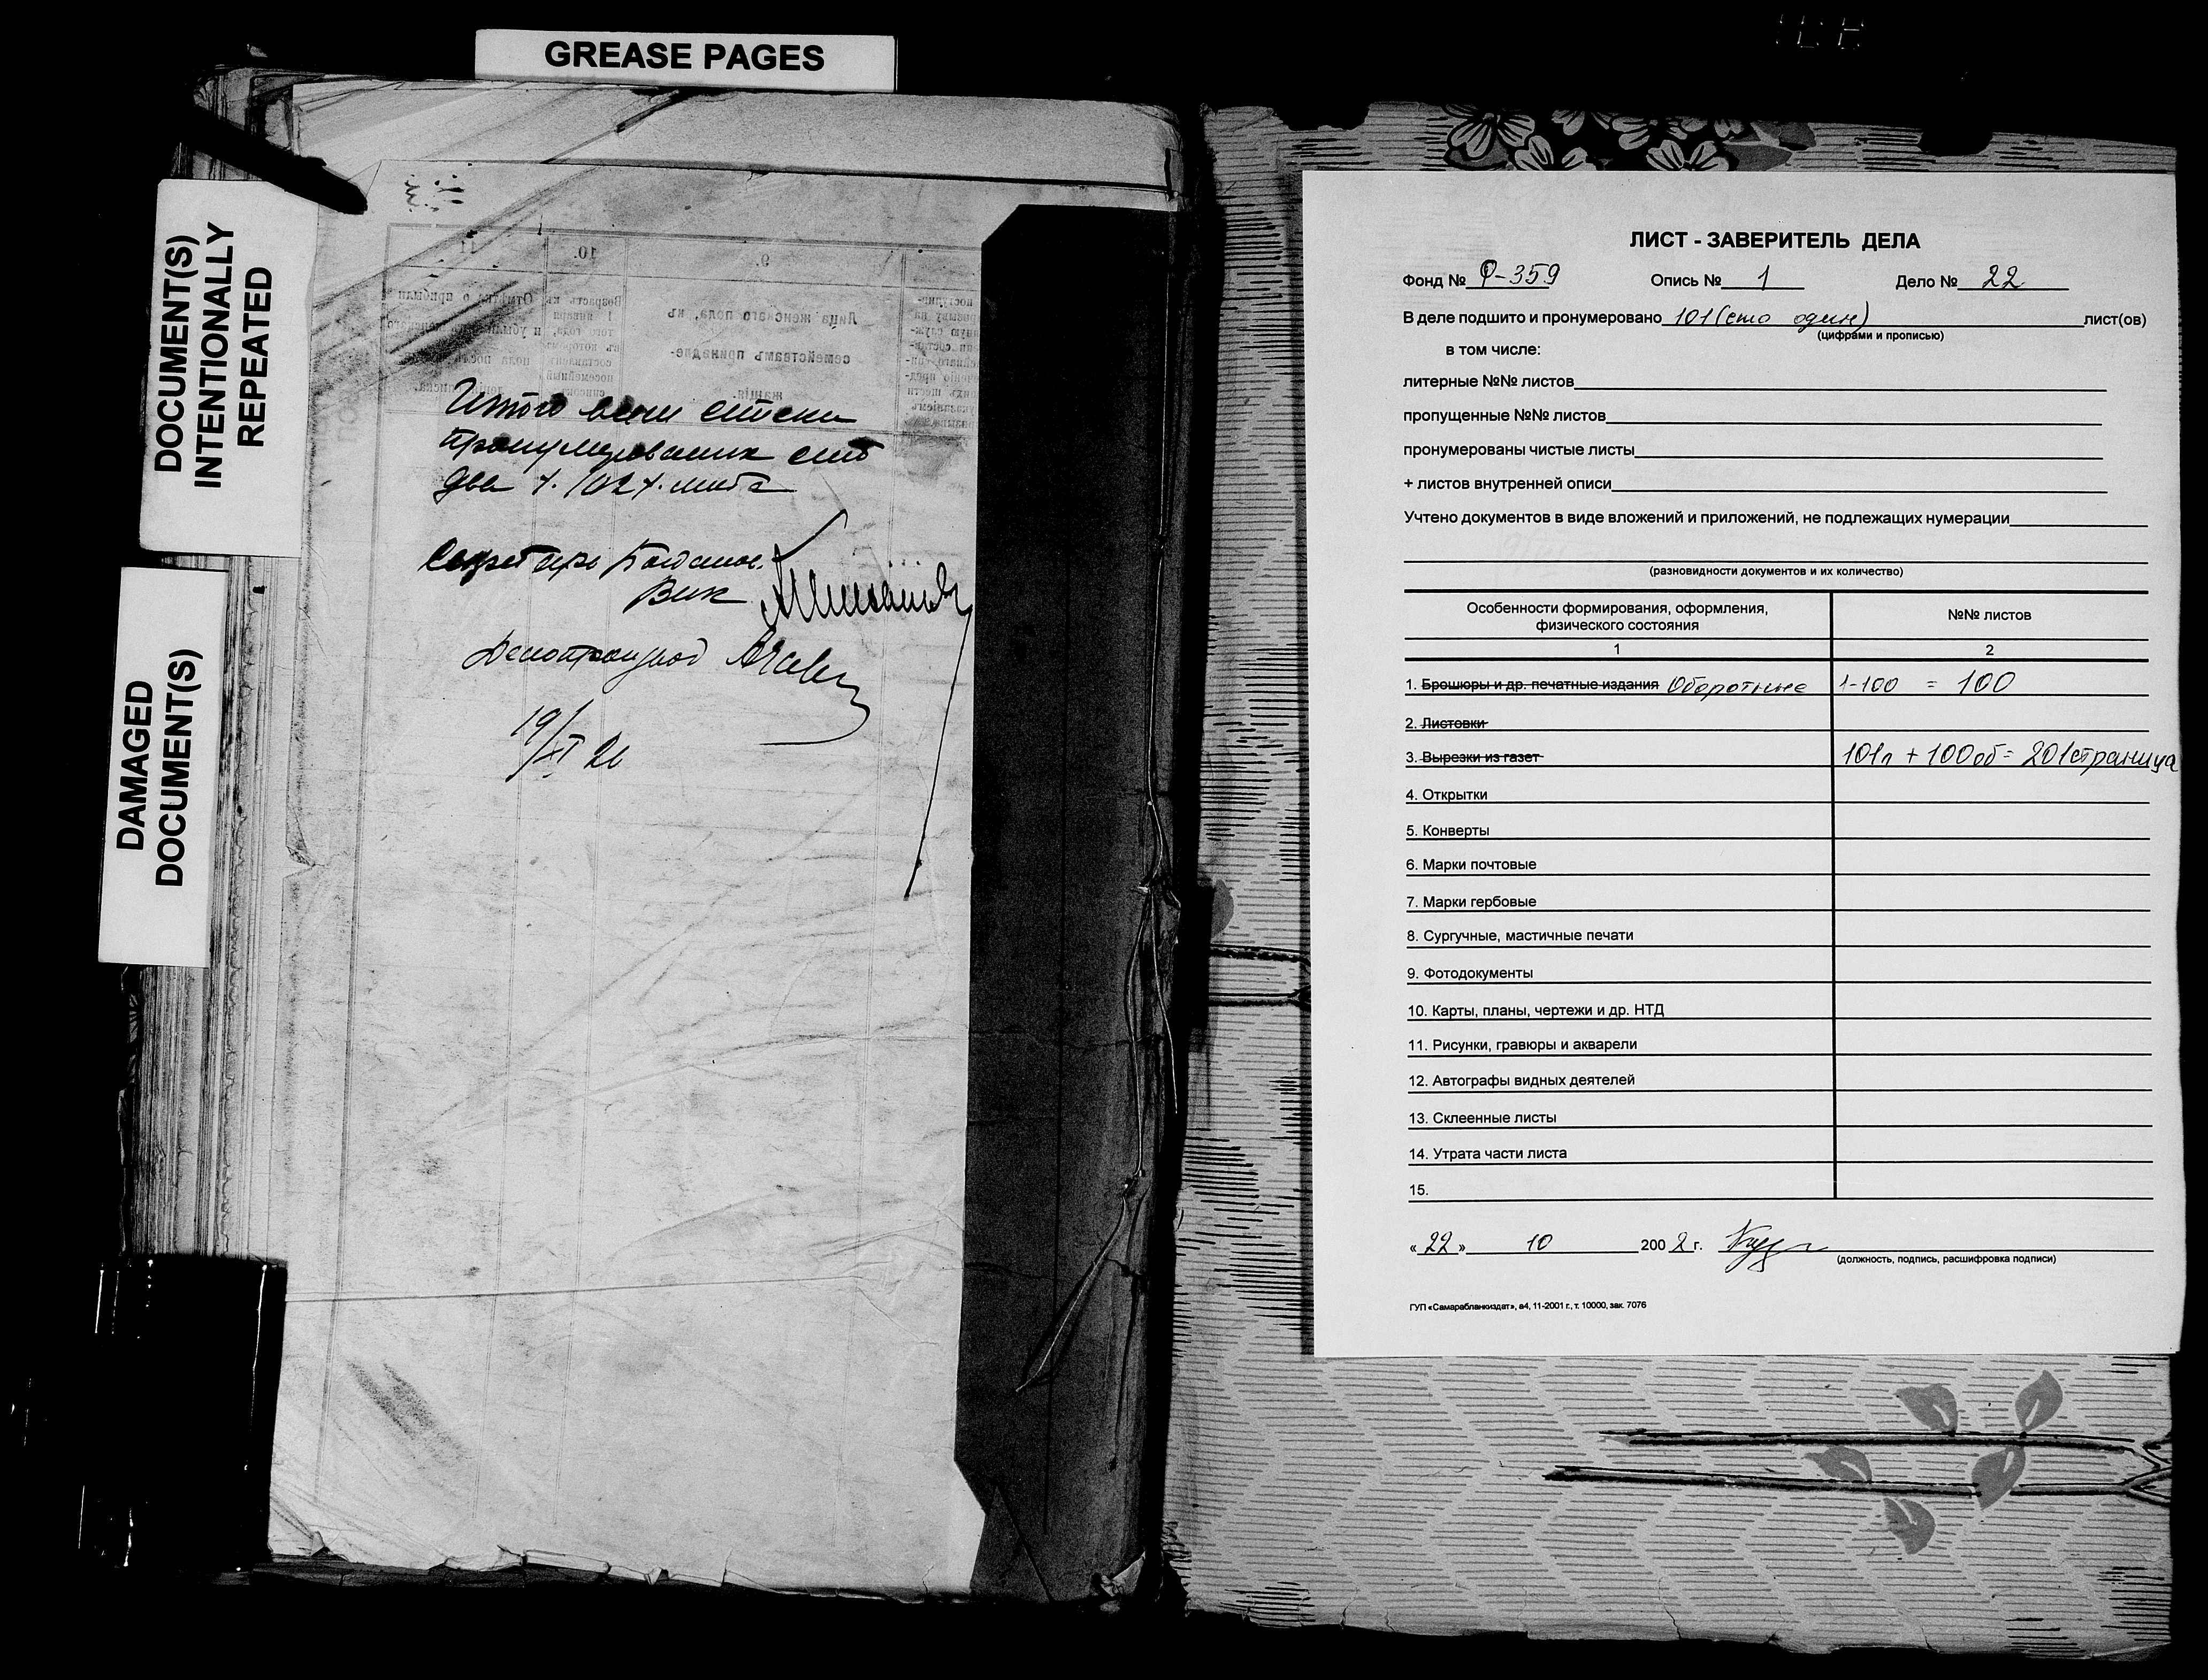 GREASE PAGES
DOCUMENT(S)
INTENTIONALLY
REPEATED
DAMAGED
DOCUMENT(S)
11.
10.
9.
Лица женскаго пола, къ
семействамъ принадле-
жащія.
Итого всем списки
пронумерованих сто
два /.102/. листа
Секретарь
Вик
Делопроизвод
19/XI 2
ЛИСТ - ЗАВЕРИТЕЛЬ ДЕЛА
Фонд № Р-359 Опись № 1 Дело № 22
В деле подшито и пронумеровано 101 (сто один) лист(ов)
(цифрами и прописью)
в том числе:
литерные №№ листов
пропущенные №№ листов
пронумерованы чистые листы
+ листов внутренней описи
Учтено документов в виде вложений и приложений, не подлежащих нумерации
(разновидности документов и их количество)
Особенности формирования, оформления, №№ листов
физического состояния
1 2
1. Брошюры и др. печатные издания Оборотные 1-100 = 100
2. Листовки
3. Вырезки из газет 101л + 100об = 201страница
4. Открытки
5. Конверты
6. Марки почтовые
7. Марки гербовые
8. Сургучные, мастичные печати
9. Фотодокументы
10. Карты, планы, чертежи и др. НТД
11. Рисунки, гравюры и акварели
12. Автографы видных деятелей
13. Склеенные листы
14. Утрата части листа
15.
«22» 10 2002 г.
(должность, подпись, расшифровка подписи)
ГУП «Самарабланкиздат», а4, 11-2001 г., т. 10000, зак. 7076